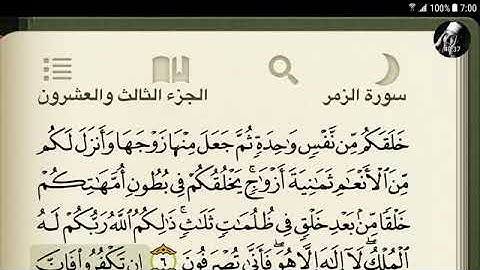 100% 7:00
40:37
سورة الزمر
الجزء الثالث والعشرون
خَلَقَكُم مِّن نَّفْسٍ وَٰحِدَةٍ ثُمَّ جَعَلَ مِنْهَا زَوْجَهَا وَأَنزَلَ لَكُم
مِّنَ ٱلْأَنْعَٰمِ ثَمَٰنِيَةَ أَزْوَٰجٍ ۚ يَخْلُقُكُمْ فِى بُطُونِ أُمَّهَٰتِكُمْ
خَلْقًا مِّنۢ بَعْدِ خَلْقٍ فِى ظُلُمَٰتٍ ثَلَٰثٍ ۚ ذَٰلِكُمُ ٱللَّهُ رَبُّكُمْ لَهُ
ٱلْمُلْكُ ۖ لَآ إِلَٰهَ إِلَّا هُوَ ۖ فَأَنَّىٰ تُصْرَفُونَ ٦ إِن تَكْفُرُوا۟ فَإِنَّ